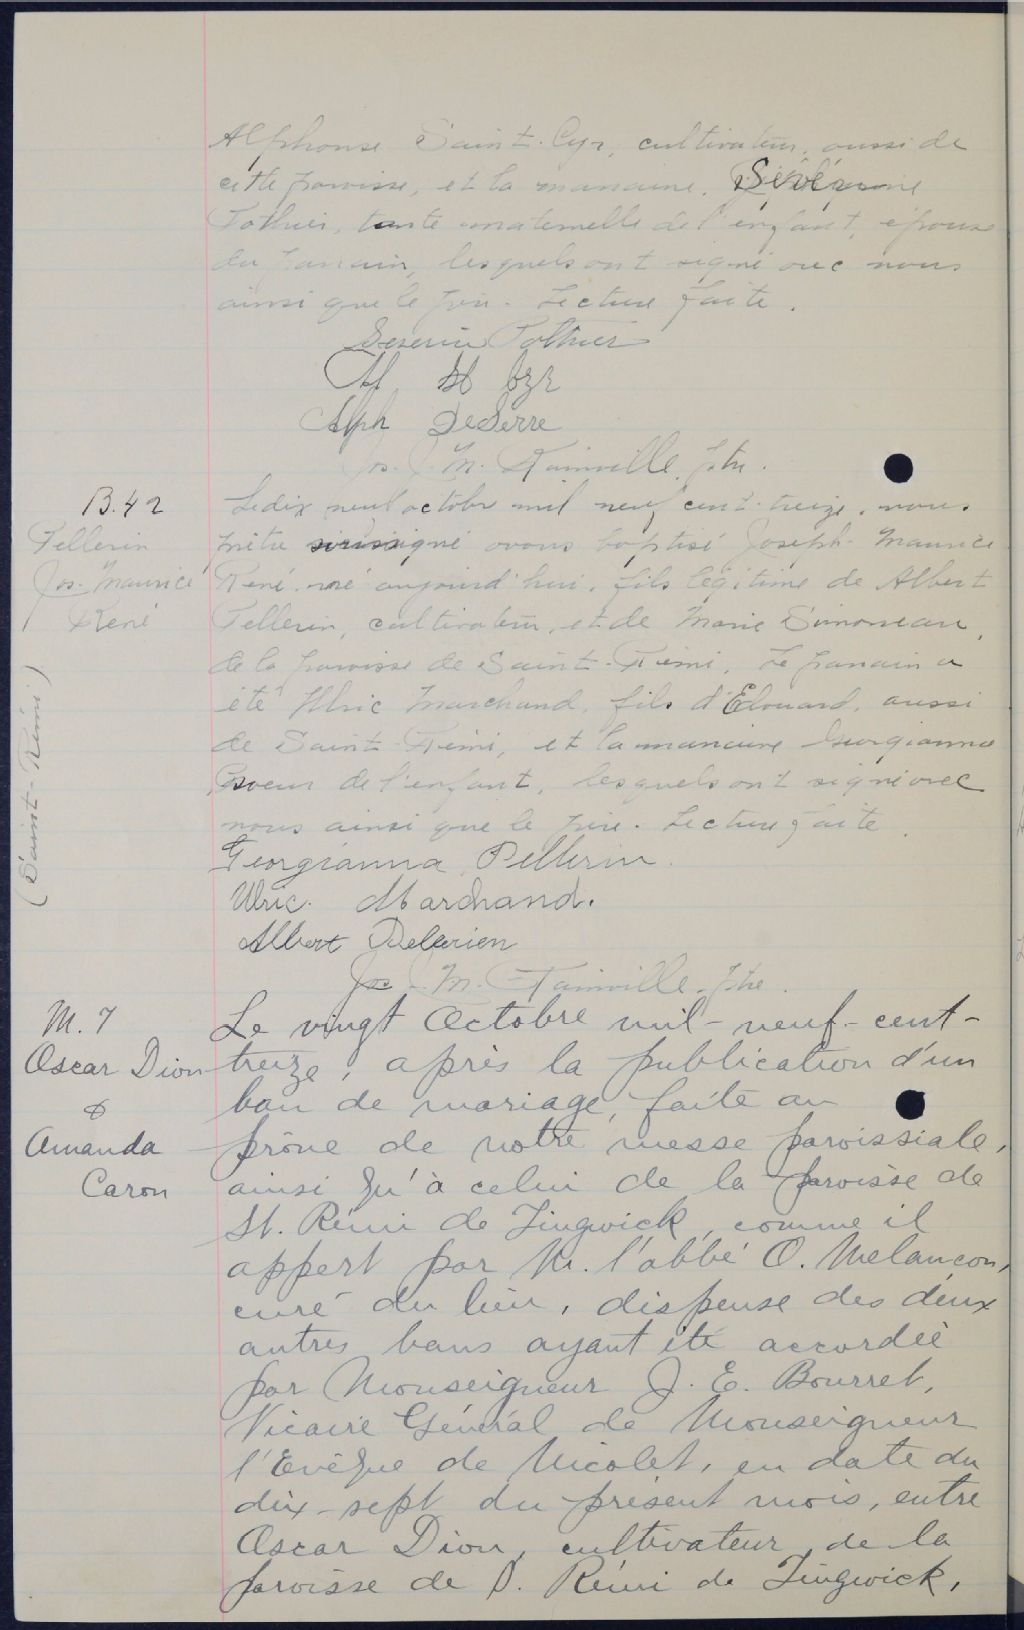 Alphonse Saint-Cyr, cultivateur, aussi de
cette paroisse, et la marraine,
Pothier, tante maternelle de l'enfant, épouse
du parrain, lesquels ont signé avec nous
ainsi que le père. Lecture faite.
Severin Pothier
Al St Cyr
Alph DeSerre
Jos. J. M. Rainville, ptre.
B.42
Pellerin
Jos. Maurice
René
(Saint-Rémi)
Le dix neuf octobre mil neuf cent-treize, nous
prêtre soussigné avons baptisé Joseph-Maurice
René, né aujourd'hui, fils légitime de Albert
Pellerin, cultivateur, et de Marie Simoneau,
de la paroisse de Saint-Rémi. Le parrain a
été Ulric Marchand, fils d'Edouard, aussi
de Saint-Rémi, et la marraine Georgianna
soeur de l'enfant, lesquels ont signé avec
nous ainsi que le père. Lecture faite.
Georgianna Pellerin.
Ulric. Marchand.
Albert Pelerien
Jos J. M. Rainville, ptre.
M. 7
Oscar Dion
&
Amanda
Caron
Le vingt Octobre mil-neuf-cent-
treize, après la publication d'un
ban de mariage, faite au
prône de notre messe paroissiale,
ainsi qu'à celui de la paroisse de
St. Rémi de Tingwick, comme il
appert par M. l'abbé O. Melancon,
curé du lieu, dispense des deux
autres bans ayant été accordée
par Monseigneur J. E. Bourret,
Vicaire Général de Monseigneur
l'Evêque de Nicolet, en date du
dix-sept du présent mois, entre
Oscar Dion, cultivateur, de la
paroisse de S. Rémi de Tingwick,